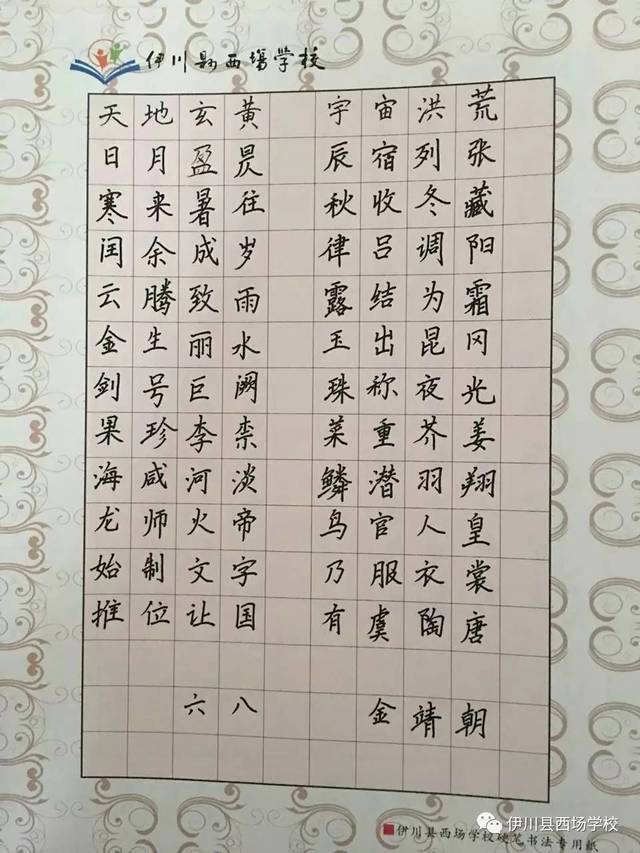 伊川县西场学校
天地玄黄 宇宙洪荒
日月盈昃 辰宿列张
寒来暑往 秋收冬藏
闰余成岁 律吕调阳
云腾致雨 露结为霜
金生丽水 玉出昆冈
剑号巨阙 珠称夜光
果珍李柰 菜重芥姜
海咸河淡 鳞潜羽翔
龙师火帝 鸟官人皇
始制文字 乃服衣裳
推位让国 有虞陶唐
六八 金靖朝
伊川县西场学校
伊川县西场学校硬笔书法专用纸